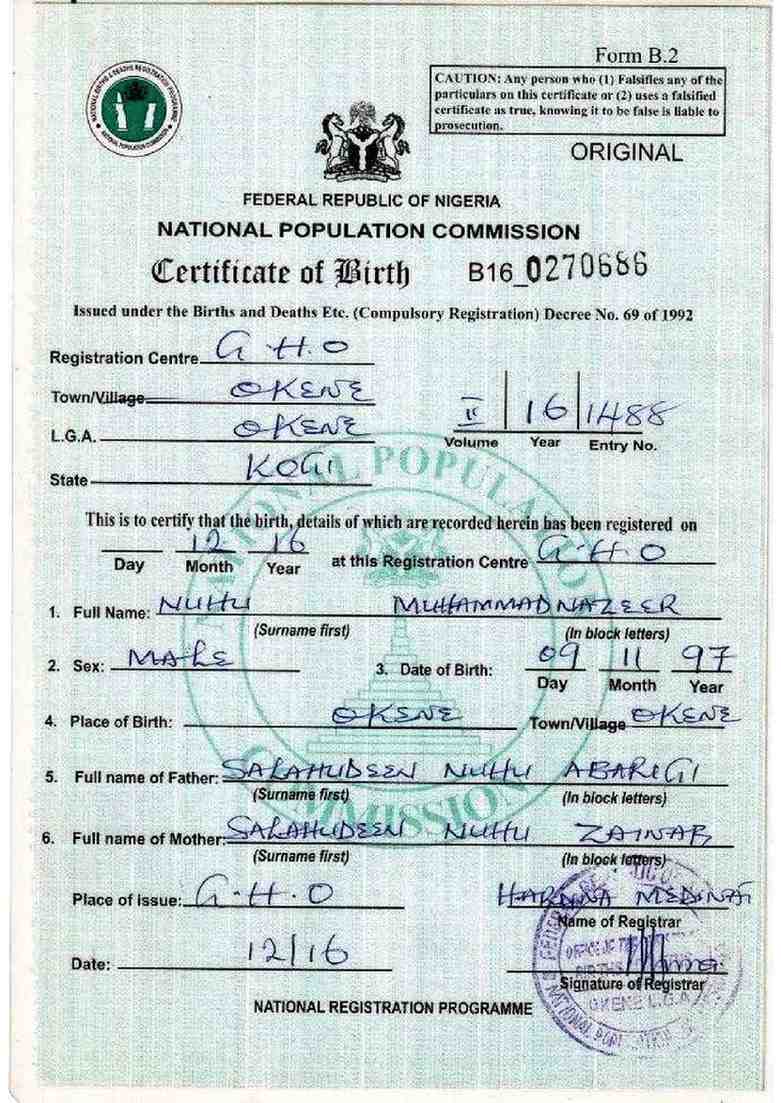 Form B.2
CAUTION: Any person who (1) Falsifies any of the
particulars on this certificate or (2) uses a falsified
certificate as true, knowing it to be false is liable to
prosecution.
ORIGINAL
FEDERAL REPUBLIC OF NIGERIA
NATIONAL POPULATION COMMISSION
Certificate of Birth B16_0270686
Issued under the Births and Deaths Etc. (Compulsory Registration) Decree No. 69 of 1992
Registration Centre G.H.O
Town/Village OKENE
L.G.A. OKENE
II 16 1488
Volume Year Entry No.
State KOGI
This is to certify that the birth, details of which are recorded herein has been registered on
12 16 at this Registration Centre G.H.O
Day Month Year
1. Full Name: NUHU MUHAMMAD NAZEER
(Surname first) (In block letters)
2. Sex: MALE 3. Date of Birth: 09 11 97
Day Month Year
4. Place of Birth: OKENE Town/Village OKENE
5. Full name of Father: SALAHUDEEN NUHU ABARIGI
(Surname first) (In block letters)
6. Full name of Mother: SALAHUDEEN NUHU ZAINAB
(Surname first) (In block letters)
Place of issue: G.H.O
Name of Registrar
Date: 12/16
Signature of Registrar
NATIONAL REGISTRATION PROGRAMME
OKENE L.G.A